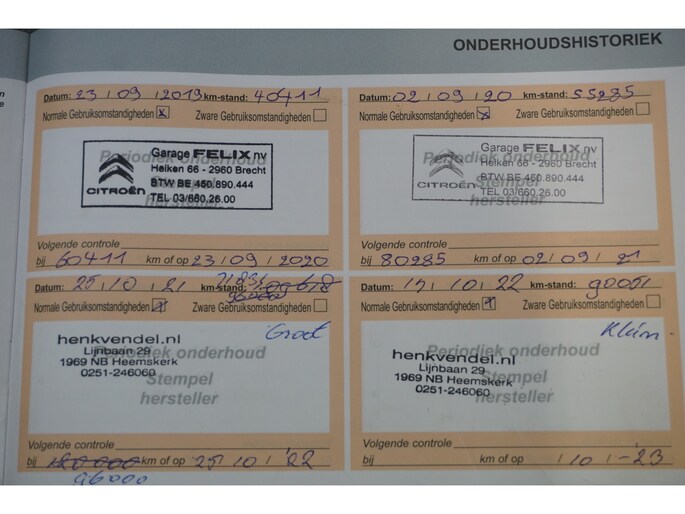 ONDERHOUDSHISTORIEK
Datum: 23 / 09 / 2019 km-stand: 40411
Normale Gebruiksomstandigheden x Zware Gebruiksomstandigheden
Periodiek onderhoud
Stempel
hersteller
Garage FELIX nv
Heiken 66 - 2960 Brecht
BTW BE 450.890.444
TEL 03/660.26.00
CITROËN
Volgende controle
bij 60411 km of op 23 / 09 / 2020
Datum: 02 / 09 / 20 km-stand: 55285
Normale Gebruiksomstandigheden x Zware Gebruiksomstandigheden
Periodiek onderhoud
Stempel
hersteller
Garage FELIX nv
Heiken 66 - 2960 Brecht
BTW BE 450.890.444
TEL 03/660.26.00
CITROËN
Volgende controle
bij 80285 km of op 02 / 09 / 21
Datum: 25 / 10 / 21 km-stand:
Normale Gebruiksomstandigheden Zware Gebruiksomstandigheden
Groot
henkvendel.nl
Lijnbaan 29
1969 NB Heemskerk
0251-246060
Periodiek onderhoud
Stempel
hersteller
Volgende controle
bij km of op 25 / 10 / '22
96000
Datum: / 10 / 22 km-stand: 90051
Normale Gebruiksomstandigheden Zware Gebruiksomstandigheden
Klein
henkvendel.nl
Lijnbaan 29
1969 NB Heemskerk
0251-246060
Periodiek onderhoud
Stempel
hersteller
Volgende controle
bij km of op / 10 / -'23